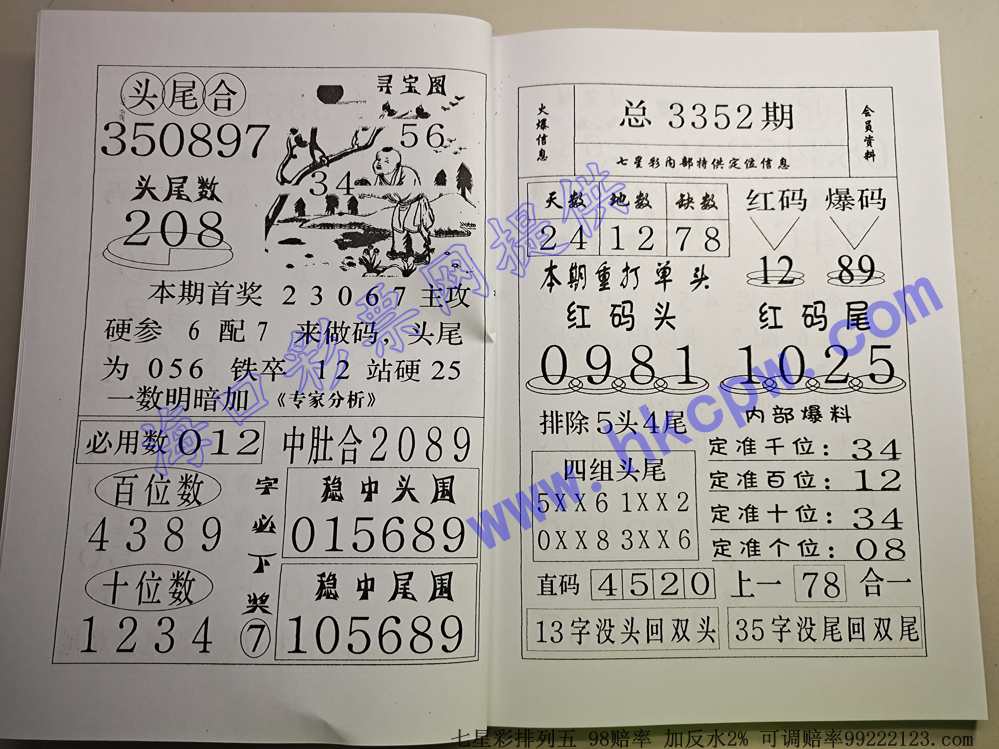 头尾合
350897
头尾数
208
寻宝图
56
34
本期首奖 23067 主攻
硬参 6 配 7 来做码,头尾
为 056 铁卒 12 站硬 25
一数明暗加 《专家分析》
必用数 012
中肚合2089
百位数
4389
十位数
1234
字必下奖⑦
稳中头围
015689
稳中尾围
105689
火爆信息
总 3352期
七星彩内部特供定位信息
会员资料
天数 地数 缺数
24 12 78
红码 爆码
12 89
本期重打单头
红码头
0981
红码尾
1025
排除5头4尾
四组头尾
5XX6 1XX2
0XX8 3XX6
内部爆料
定准千位:34
定准百位:12
定准十位:34
定准个位:08
直码 4520 上一 78 合一
13字没头回双头
35字没尾回双尾
海口彩票网提供
www.hkcpw.com
七星彩排列五 98赔率 加反水2% 可调赔率99222123.com